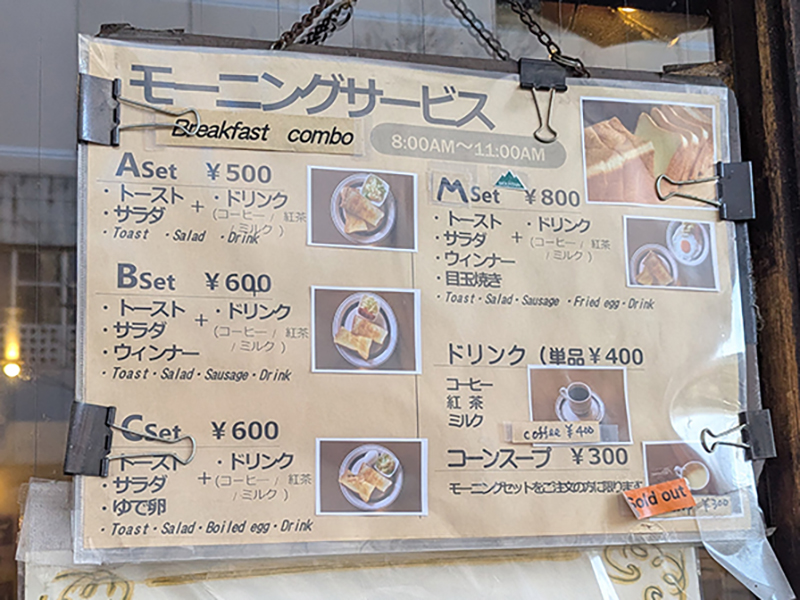 モーニングサービス
Breakfast combo
8:00AM～11:00AM
A Set ￥500
・トースト
・サラダ
+
・ドリンク
(コーヒー / 紅茶
/ ミルク )
・Toast ・Salad ・Drink
B Set ￥600
・トースト
・サラダ
・ウィンナー
+
・ドリンク
(コーヒー / 紅茶
/ ミルク )
・Toast・Salad・Sausage・Drink
C Set ￥600
・トースト
・サラダ
・ゆで卵
+
・ドリンク
(コーヒー / 紅茶
/ ミルク )
・Toast・Salad・Boiled egg・Drink
M Set ￥800
・トースト
・サラダ
・ウィンナー
・目玉焼き
+
・ドリンク
(コーヒー / 紅茶
/ ミルク )
・Toast・Salad・Sausage ・Fried egg・Drink
ドリンク（単品￥400
コーヒー
紅 茶
ミルク
coffee ￥400
コーンスープ ￥300
モーニングセットをご注文の方に限ります
Sold out
￥300